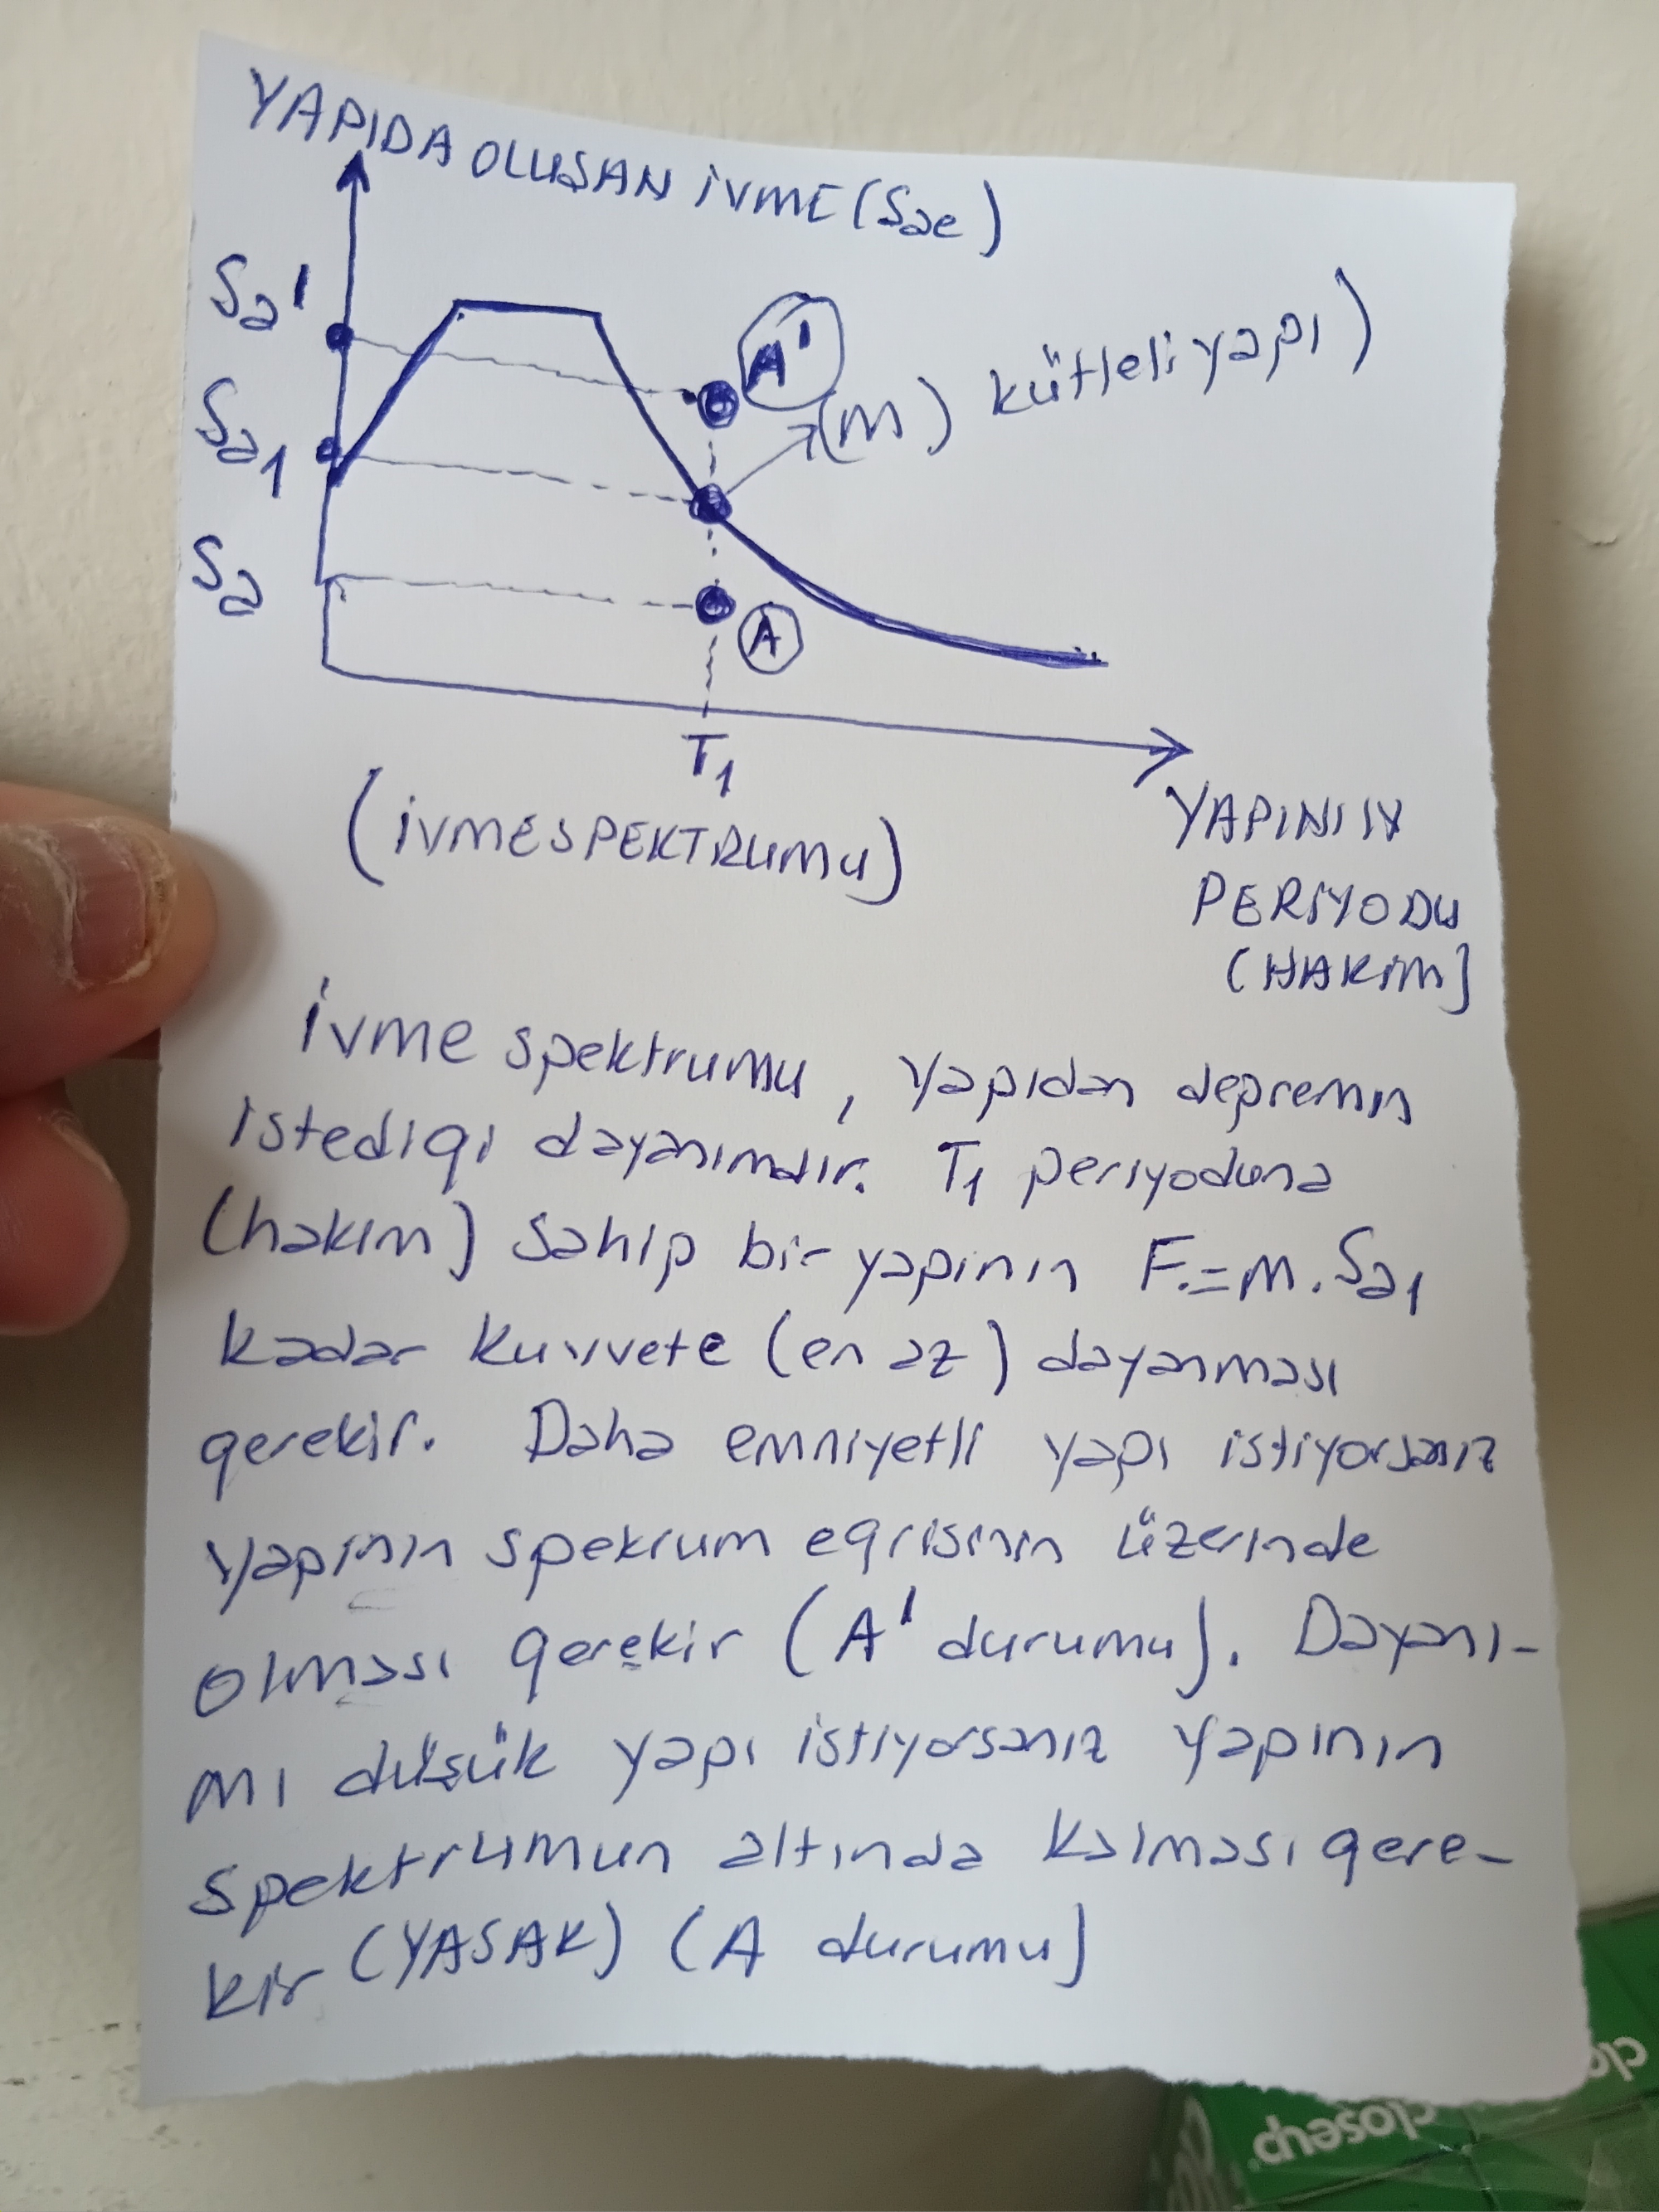 YAPIDA OLUŞAN İVME (Sae)
Sa'
A'
(m) kütleli yapı)
Sa1
Sa
A
T1
(İVMESPEKTRUMU)
YAPININ
PERİYODU
(HAKİM)
İvme spektrumu, yapıdan depremin
istediği dayanımdır. T1 periyoduna
(hakim) sahip bir yapının F=m.Sa1
kadar kuvvete (en az) dayanması
gerekir. Daha emniyetli yapı istiyorsanız
yapının spekrum eğrisinin üzerinde
olması gerekir (A' durumu). Dayanı-
mı düşük yapı istiyorsanız yapının
spektrumun altında kalması gere-
kir (YASAK) (A durumu)
closeup